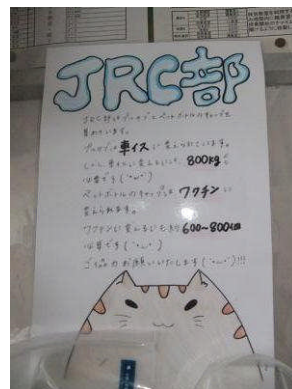 JRC部
JRC部ではプルタブとペットボトルのキャップを
集めています。
プルタブは車イスに変えられています。
しかし、車イスに変えるには、800kgも
必要です(´・ω・`)
ペットボトルのキャップはワクチンに
変えられます。
ワクチンに変えるにも約600~800個
必要です(´・ω・`)
ご協力お願いいたします(´・ω・`)!!!